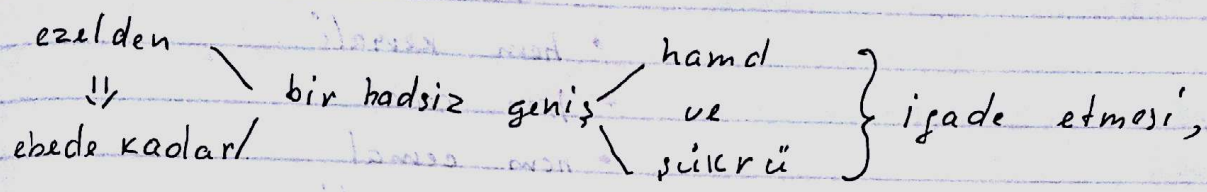 ezelden
⇓
ebede kadar
bir hadsiz geniş
hamd
ve
şükrü
ifade etmesi,